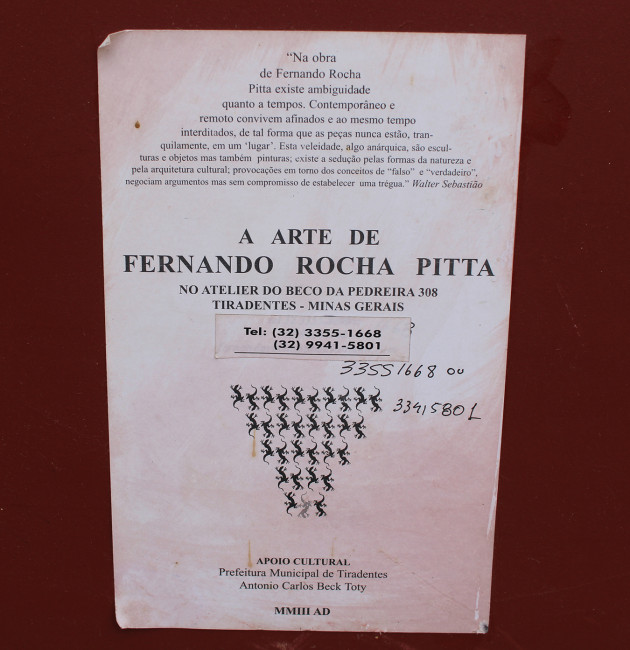 “Na obra
de Fernando Rocha
Pitta existe ambiguidade
quanto a tempos. Contemporâneo e
remoto convivem afinados e ao mesmo tempo
interditados, de tal forma que as peças nunca estão, tran-
quilamente, em um ‘lugar’. Esta veleidade, algo anárquica, são escul-
turas e objetos mas também pinturas; existe a sedução pelas formas da natureza e
pela arquitetura cultural; provocações em torno dos conceitos de “falso” e “verdadeiro”,
negociam argumentos mas sem compromisso de estabelecer uma trégua.” Walter Sebastião
A ARTE DE
FERNANDO ROCHA PITTA
NO ATELIER DO BECO DA PEDREIRA 308
TIRADENTES - MINAS GERAIS
Tel: (32) 3355-1668
(32) 9941-5801
33551668 ou
33415801
APOIO CULTURAL
Prefeitura Municipal de Tiradentes
Antonio Carlos Beck Toty
MMIII AD